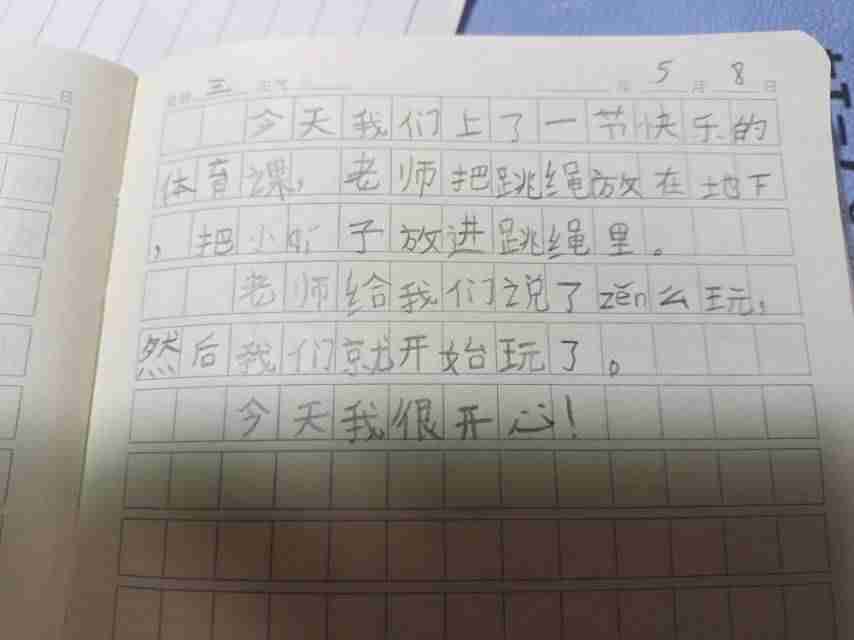 星期 三 天气
年 5 月 8 日
今天我们上了一节快乐的
体育课，老师把跳绳放在地下
，把小 子放进跳绳里。
老师给我们说了zěn么玩，
然后我们就开始玩了。
今天我很开心！
日